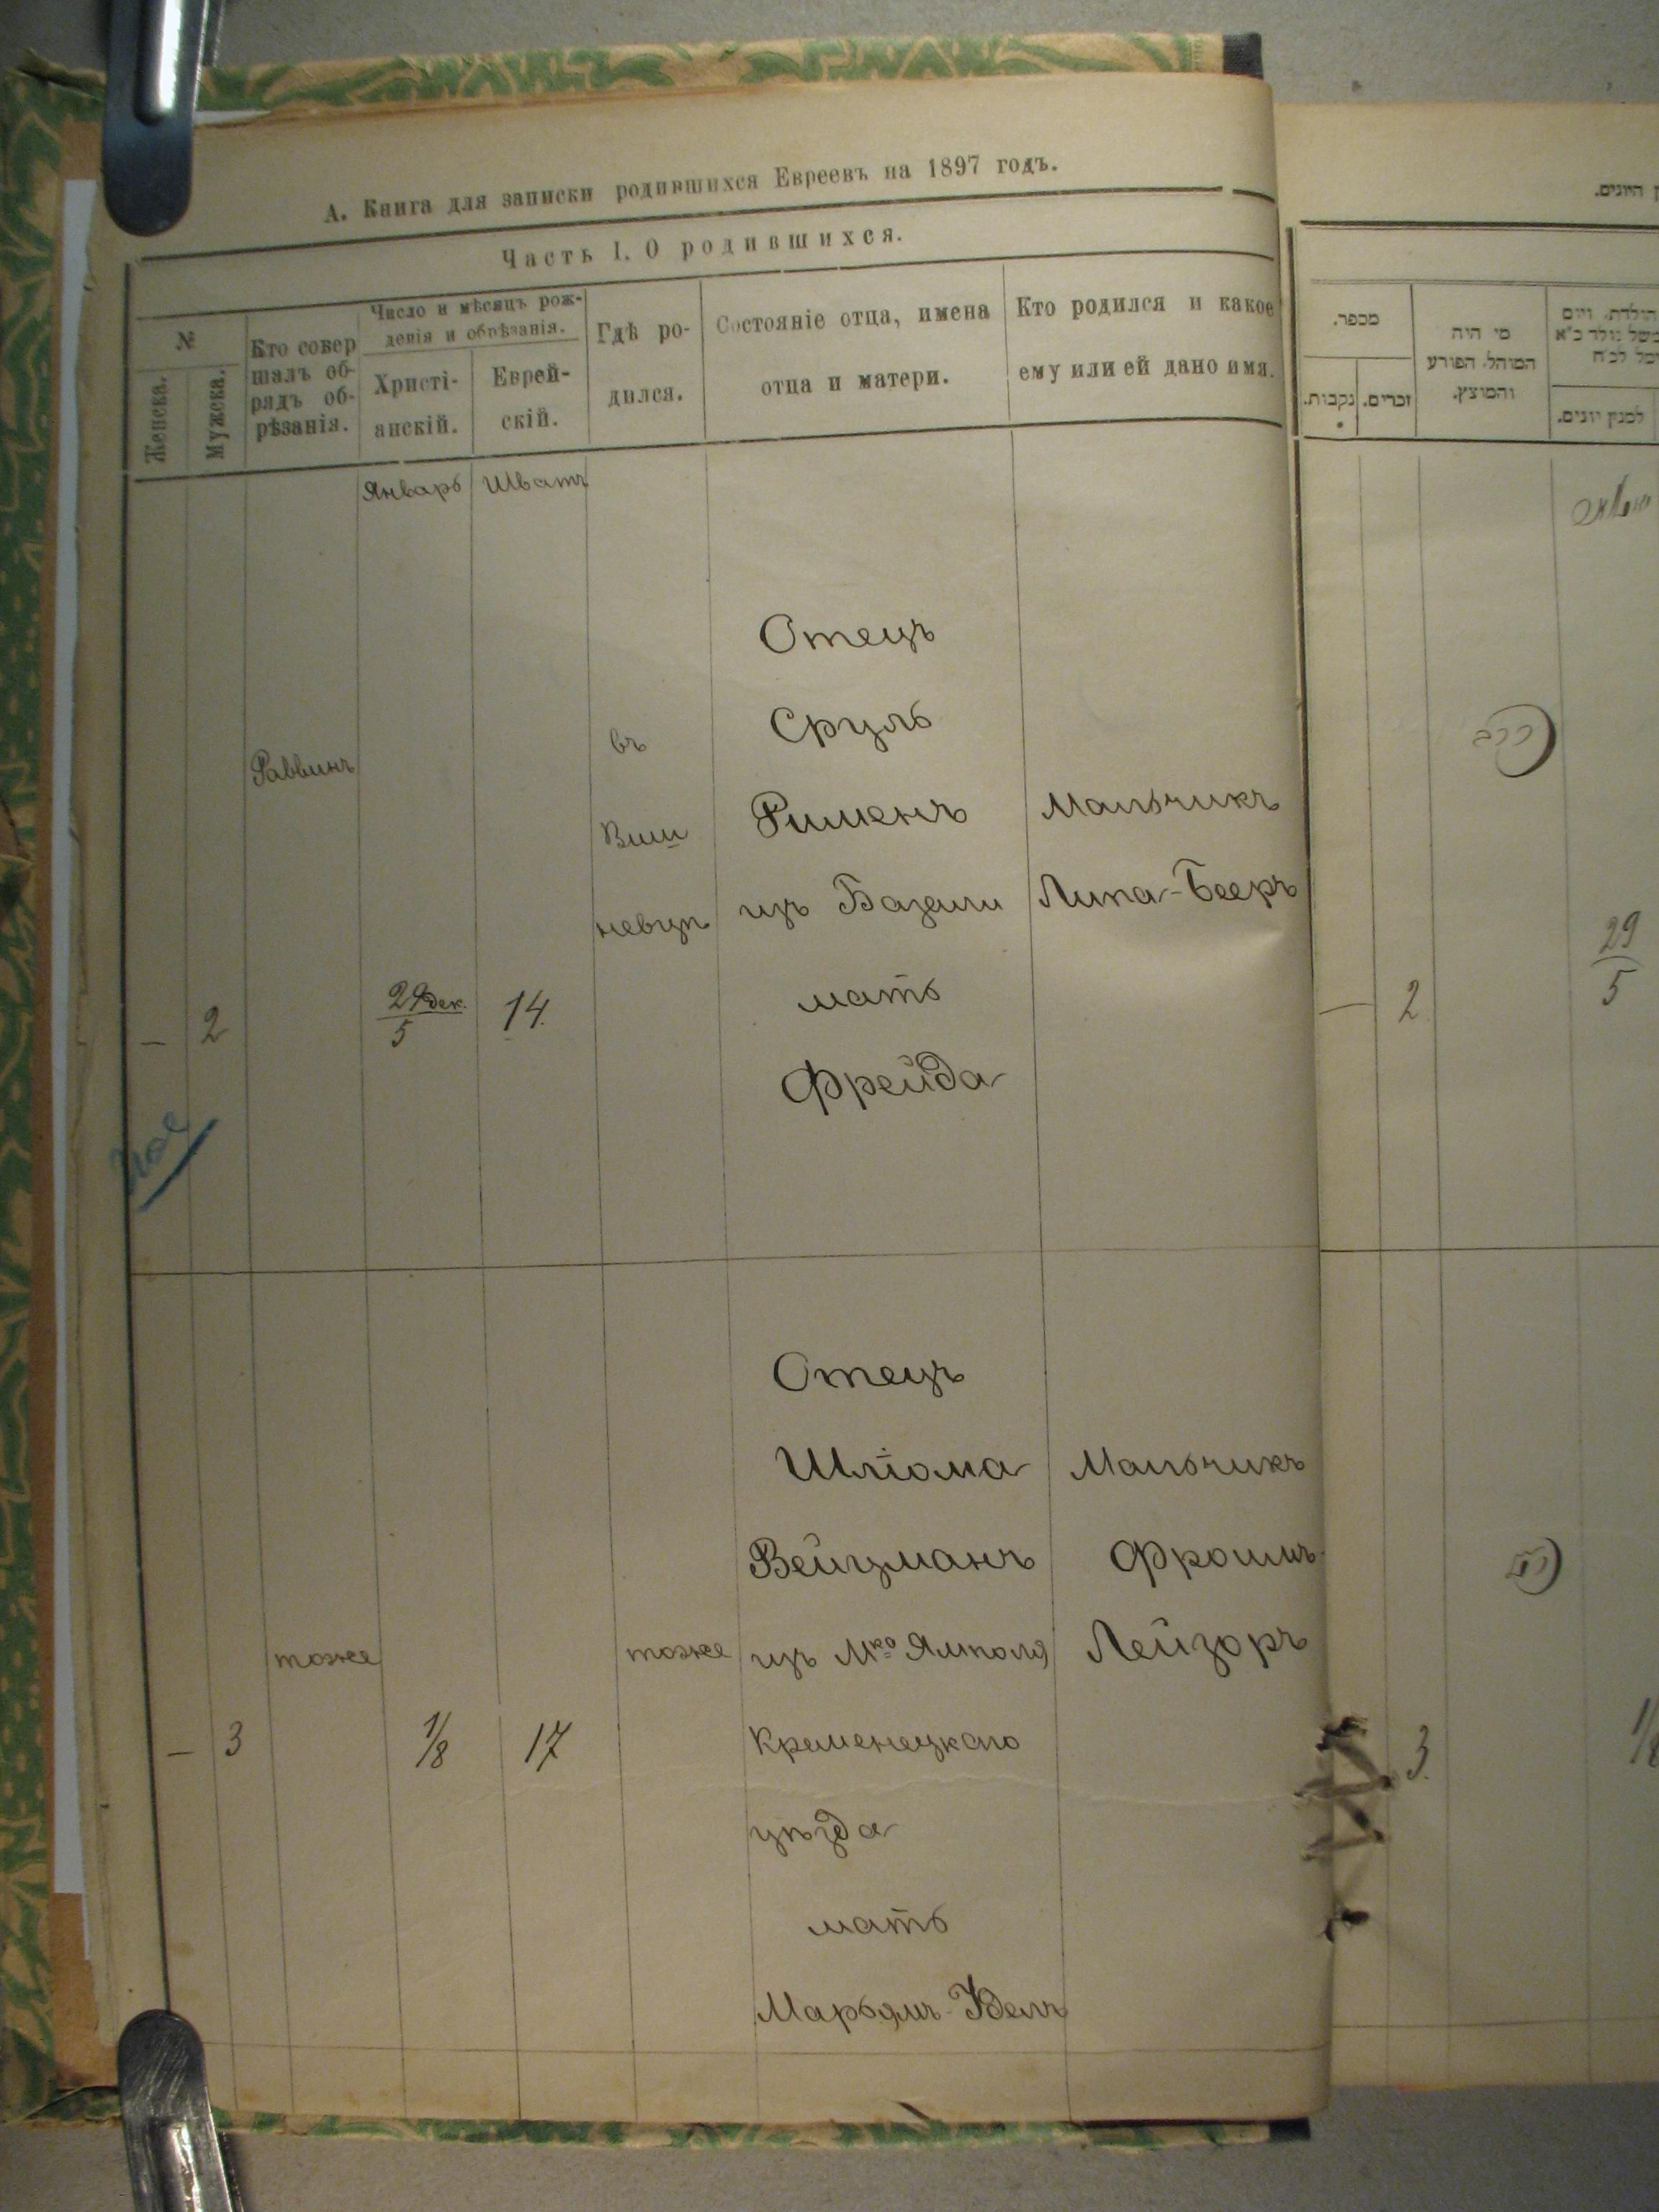 А. Книга для записки родившихся Евреевъ на 1897 годъ.
Часть I. О родившихся.
№
Женска.
Мужска.
Кто совер
шалъ об-
рядъ об-
рѣзанія.
Число и мѣсяцъ рож-
денія и обрѣзанія.
Христі-
анскій.
Еврей-
скій.
Гдѣ ро-
дился.
Состояніе отца, имена
отца и матери.
Кто родился и какое
ему или ей дано имя.
Январь
Шватъ
—
2
Раввинъ
29 дек.
5
14.
въ
Виш
невцѣ
Отецъ
Сруль
Рименъ
изъ Базали
мать
Фрейда
Мальчикъ
Липа-Бееръ
—
3
тоже
1/8
17
тоже
Отецъ
Шліома
Вейцманъ
изъ Мко Ямполя
Кременецкаго
уѣзда
мать
Марьямъ-Удель
Мальчикъ
Фроимъ
Лейзоръ
מספר.
נקבות.
זכרים.
מי היה
המוהל, הפורע
והמוצץ.
למנין יונים.
—
2
29
5
3.